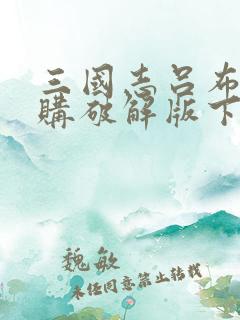 三國志呂布
購破解版下
魏敏
未经同意禁止转载